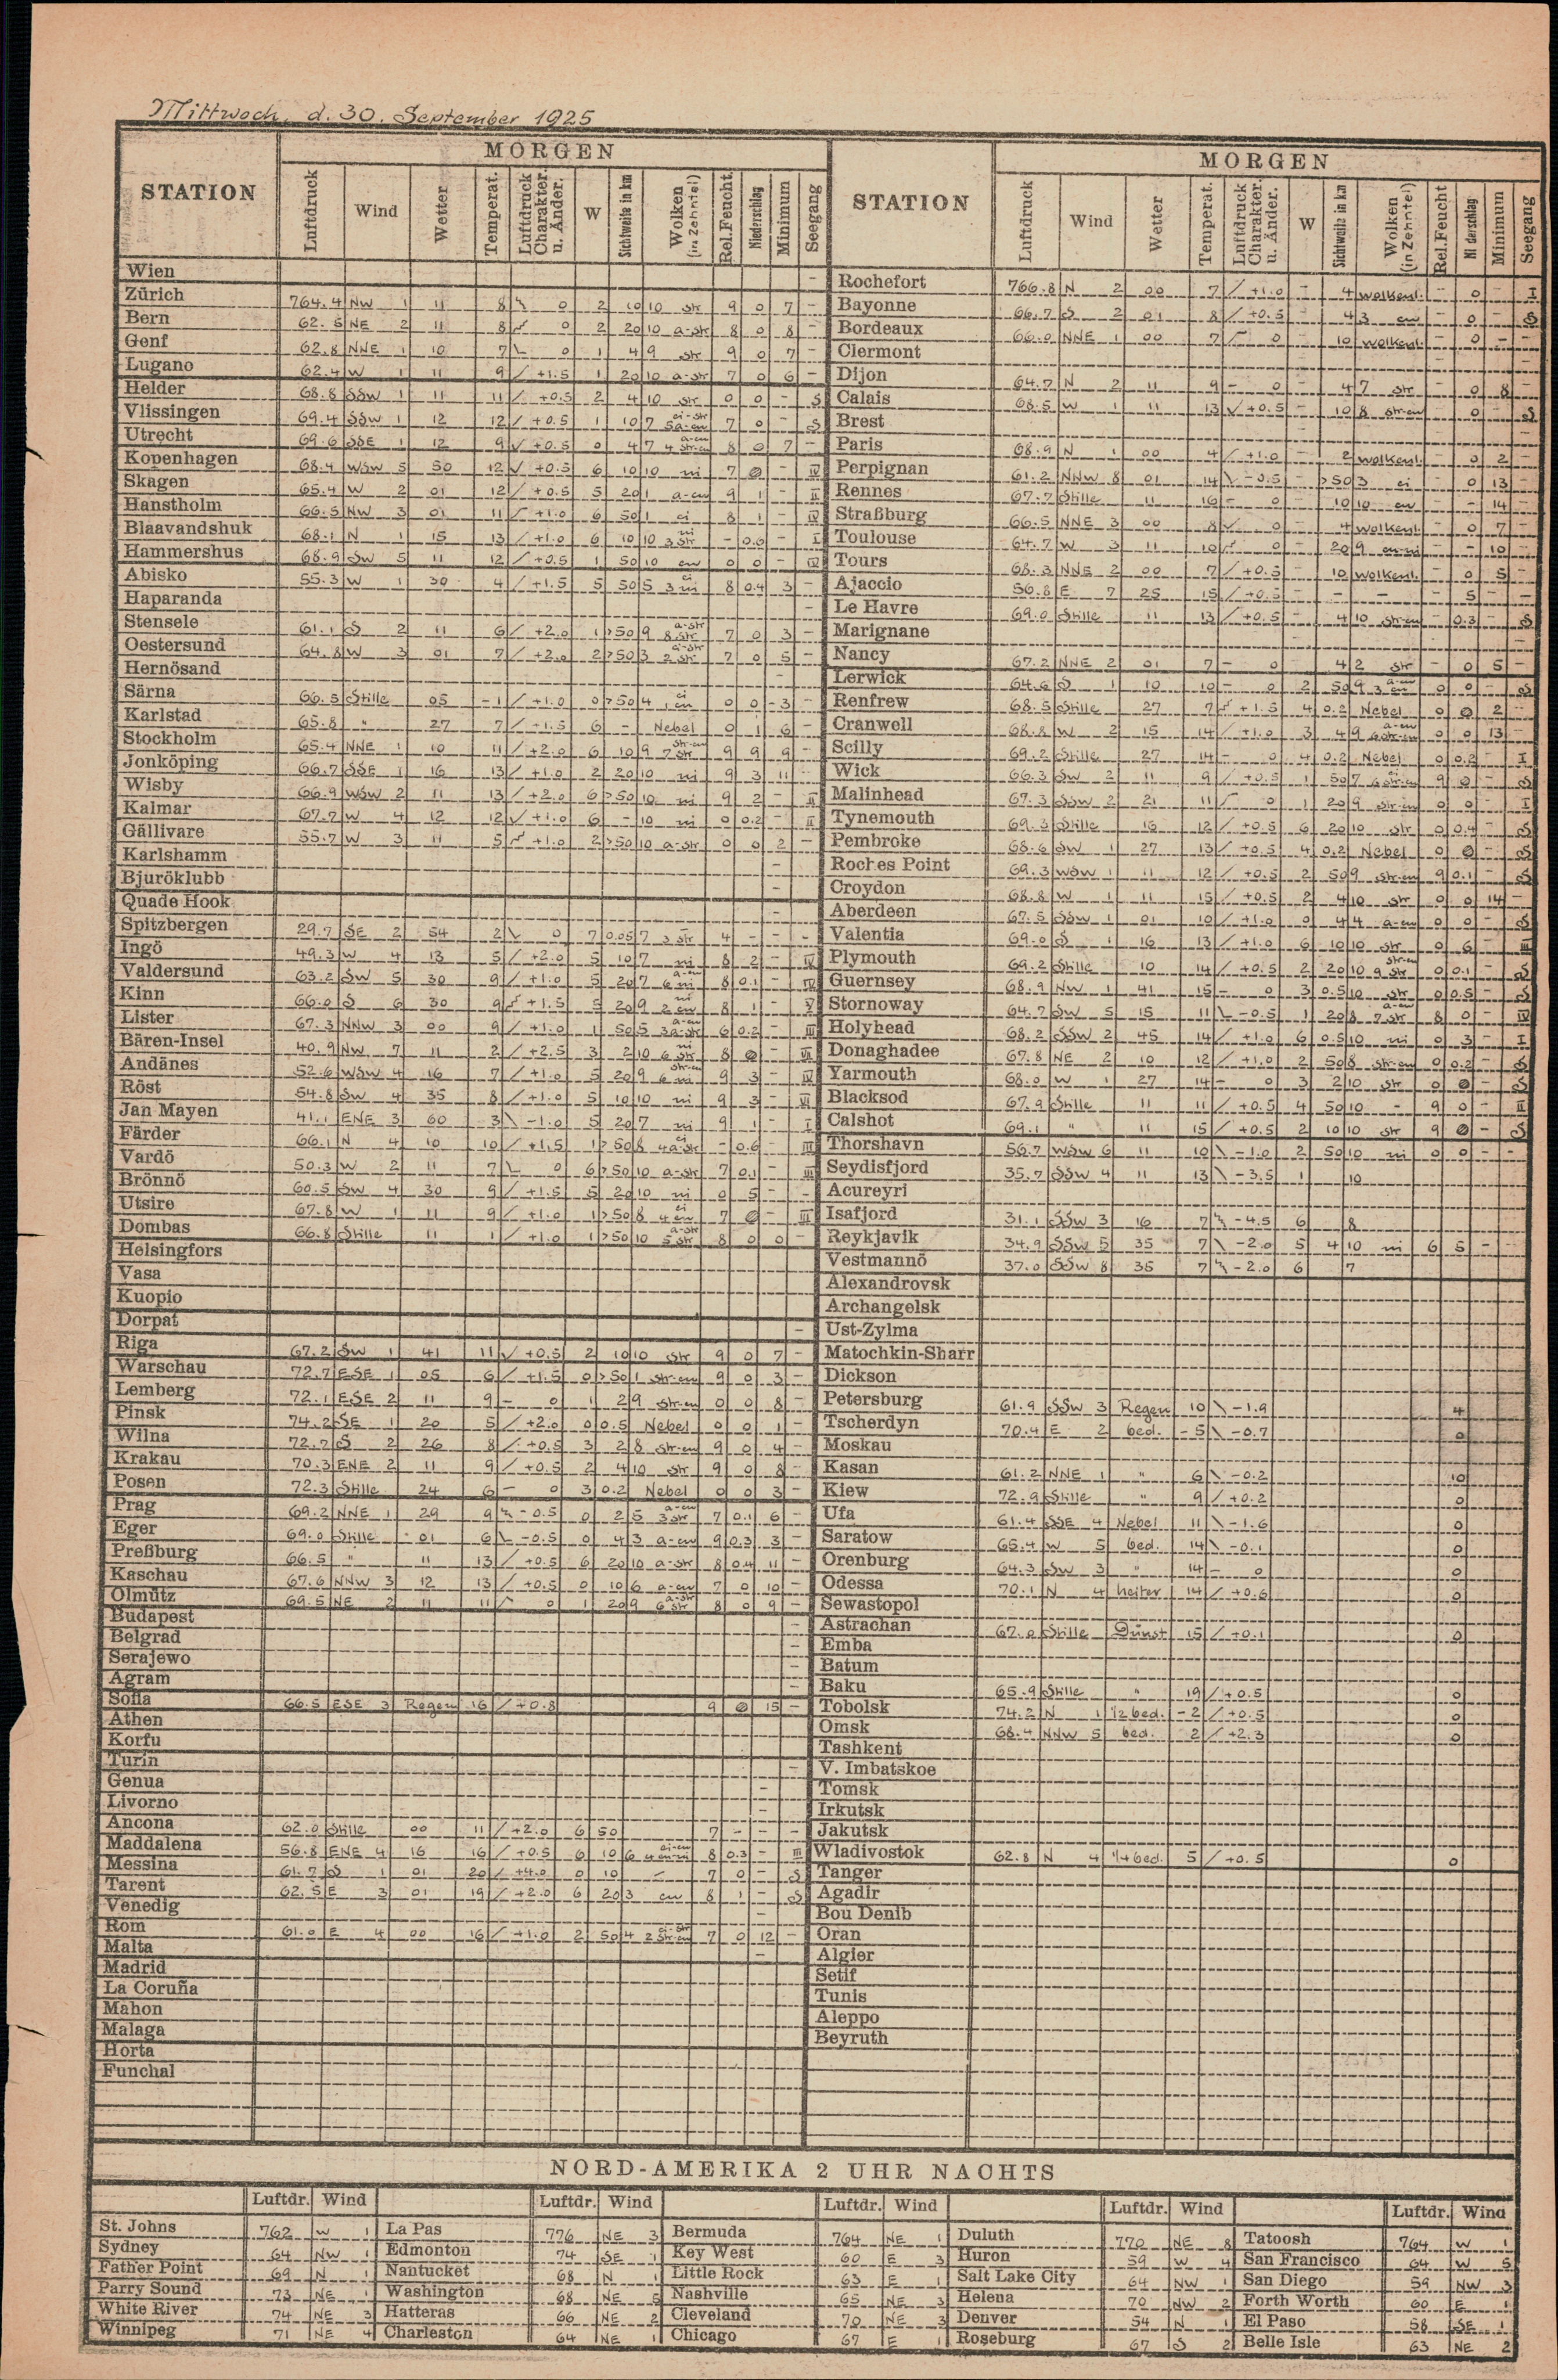 Mittwoch, d. 30. September 1925
MORGEN
STATION Luftdruck Wind Wetter Temperat. Luftdruck Charakter. u. Änder. W Sichtweite in km Wolken (in Zehntel) Rel.Feucht. Niederschlag Minimum Seegang
Wien -
Zürich 764.4 NW 1 11 8 0 2 10 10 str 9 0 7 -
Bern 62.5 NE 2 11 8 0 2 20 10 a-str 8 0 8 -
Genf 62.8 NNE 1 10 7 0 1 4 9 str 9 0 7 -
Lugano 62.4 W 1 11 9 / +1.5 1 20 10 a-str 7 0 6 -
Helder 68.8 SSW 1 11 11 / +0.5 2 4 10 str 0 0 - S
Vlissingen 69.4 SSW 1 12 12 / +0.5 1 10 7 ci-str 5 a-cu 7 0 - S
Utrecht 69.6 SSE 1 12 9 √ +0.5 0 4 7 a-cu 4 str-cu 8 0 7 -
Kopenhagen 68.4 WSW 5 50 12 √ +0.5 6 10 10 ni 7 0 - IV
Skagen 65.4 W 2 01 12 / +0.5 5 20 1 a-cu 9 1 - II
Hanstholm 66.5 NW 3 01 11 +1.0 6 50 1 ci 8 1 - IV
Blaavandshuk 68.1 N 1 15 13 / +1.0 6 10 10 ni 3 str - 0.6 - I
Hammershus 68.9 SW 5 11 12 / +0.5 1 50 10 cu 0 0 - IV
Abisko 55.3 W 1 30 4 / +1.5 5 50 5 ci 3 ni 8 0.4 3 -
Haparanda -
Stensele 61.1 S 2 11 6 / +2.0 1 >50 9 a-str 8 str 7 0 3 -
Oestersund 64.8 W 3 01 7 / +2.0 2 >50 3 a-str 2 str 7 0 5 -
Hernösand -
Särna 66.5 Stille 05 -1 / +1.0 0 >50 4 ci 1 cu 0 0 -3 -
Karlstad 65.8 " 27 7 / +1.5 6 - Nebel 0 1 6 -
Stockholm 65.4 NNE 1 10 11 / +2.0 6 10 9 str-cu 7 str 9 9 9 -
Jonköping 66.7 SSE 1 16 13 / +1.0 2 20 10 ni 9 3 11 -
Wisby 66.9 WSW 2 11 13 / +2.0 6 >50 10 ni 9 2 - II
Kalmar 67.7 W 4 12 12 √ +1.0 6 - 10 ni 0 0.2 - II
Gällivare 55.7 W 3 11 5 +1.0 2 >50 10 a-str 0 0 2 -
Karlshamm
Bjuröklubb -
Quade Hook -
Spitzbergen 29.7 SE 2 54 2 \ 0 7 0.05 7 3 str 4 - - -
Ingö 49.3 W 4 13 5 / +2.0 5 10 7 ni 8 2 - IV
Valdersund 63.2 SW 5 30 9 / +1.0 5 20 7 a-cu 6 ni 8 0.1 - IV
Kinn 66.0 S 6 30 9 +1.5 5 20 9 ni 2 cu 8 1 - V
Lister 67.3 NNW 3 00 9 / +1.0 1 50 5 a-cu 3 a-str 6 0.2 - III
Bären-Insel 40.9 NW 7 11 2 / +2.5 3 2 10 ni 6 str 8 0 - VII
Andänes 52.6 WSW 4 16 7 / +1.0 5 20 9 str-cu 6 ni 9 3 - IV
Röst 54.8 SW 4 35 8 / +1.0 5 10 10 ni 9 3 - VI
Jan Mayen 41.1 ENE 3 60 3 \ -1.0 5 20 7 ni 9 1 - I
Färder 66.1 N 4 10 10 / +1.5 1 >50 8 ci 4 a-str - 0.6 - III
Vardö 50.3 W 2 11 7 0 6 >50 10 a-str 7 0.1 - III
Brönnö 60.5 SW 4 30 9 / +1.5 5 20 10 ni 0 5 - -
Utsire 67.8 W 1 11 9 / +1.0 1 >50 8 ci 4 cu 7 0 - III
Dombas 66.8 Stille 11 1 / +1.0 1 >50 10 a-str 5 str 8 0 0 -
Helsingfors
Vasa
Kuopio
Dorpat -
Riga 67.2 SW 1 41 11 √ +0.5 2 10 10 str 9 0 7 -
Warschau 72.7 ESE 1 05 6 / +1.5 0 >50 1 str-cu 9 0 3 -
Lemberg 72.1 ESE 2 11 9 - 0 1 2 9 str-cu 0 0 8 -
Pinsk 74.2 SE 1 20 5 / +2.0 0 0.5 Nebel 0 0 1 -
Wilna 72.7 S 2 26 8 / +0.5 3 2 8 str-cu 9 0 4 -
Krakau 70.3 ENE 2 11 9 / +0.5 2 4 10 str 9 0 8 -
Posen 72.3 Stille 24 6 - 0 3 0.2 Nebel 0 0 3 -
Prag 69.2 NNE 1 29 9 -0.5 0 2 5 a-cu 3 str 7 0.1 6 -
Eger 69.0 Stille 01 6 -0.5 0 4 3 a-cu 9 0.3 3 -
Preßburg 66.5 " 11 13 / +0.5 6 20 10 a-str 8 0.4 11 -
Kaschau 67.6 NNW 3 12 13 / +0.5 0 10 6 a-cu 7 0 10 -
Olmütz 69.5 NE 2 11 11 0 1 20 9 a-str 6 str 8 0 9 -
Budapest -
Belgrad -
Serajewo -
Agram -
Sofia 66.5 ESE 3 Regen 16 / +0.8 9 0 15 -
Athen
Korfu
Turin -
Genua -
Livorno -
Ancona 62.0 Stille 00 11 / +2.0 6 50 7 - - -
Maddalena 56.8 ENE 4 16 16 / +0.5 6 10 6 ci-cu 4 cu-ni 8 0.3 - III
Messina 61.7 S 1 01 20 / +4.0 0 10 - 7 0 - S
Tarent 62.5 E 3 01 19 / +2.0 6 20 3 cu 8 1 - S
Venedig -
Rom 61.0 E 4 00 16 / +1.0 2 50 4 ci-str 2 str-cu 7 0 12 -
Malta -
Madrid
La Coruña
Mahon
Malaga
Horta
Funchal
MORGEN
STATION Luftdruck Wind Wetter Temperat. Luftdruck Charakter. u. Änder. W Sichtweite in km Wolken (in Zehntel) Rel.Feucht Ni derschlag Minimum Seegang
Rochefort 766.8 N 2 00 7 / +1.0 - 4 wolkenl. - 0 - I
Bayonne 66.7 S 2 01 8 / +0.5 - 4 3 cu - 0 - S
Bordeaux 66.0 NNE 1 00 7 0 - 10 wolkenl. - 0 - -
Clermont
Dijon 64.7 N 2 11 9 - 0 - 4 7 str - 0 8 -
Calais 68.5 W 1 11 13 √ +0.5 - 10 8 str-cu - 0 - S
Brest
Paris 68.9 N 1 00 4 / +1.0 - 2 wolkenl. - 0 2 -
Perpignan 61.2 NNW 8 01 14 \ -0.5 - >50 3 ci 0 13 -
Rennes 67.7 Stille 11 16 - 0 - 10 10 cu - 14 -
Straßburg 66.5 NNE 3 00 8 √ 0 - 4 wolkenl. - 0 7 -
Toulouse 64.7 W 3 11 10 0 - 20 9 cu-ni - - 10 -
Tours 68.3 NNE 2 00 7 / +0.5 - 10 wolkenl. - 0 5 -
Ajaccio 56.8 E 7 25 15 / +0.5 - - - - 5 - -
Le Havre 69.0 Stille 11 13 / +0.5 - 4 10 str-cu - 0.3 - S
Marignane
Nancy 67.2 NNE 2 01 7 - 0 - 4 2 str - 0 5 -
Lerwick 64.6 S 1 10 10 - 0 2 50 9 a-cu 3 cu 0 0 - S
Renfrew 68.5 Stille 27 7 +1.5 4 0.2 Nebel 0 0 2 -
Cranwell 68.8 W 2 15 14 / +1.0 3 4 9 a-cu 6 str-cu 0 0 13 -
Scilly 69.2 Stille 27 14 - 0 4 0.2 Nebel 0 0.2 - I
Wick 66.3 SW 2 11 9 / +0.5 1 50 7 ci 6 str-cu 9 0 - S
Malinhead 67.3 SSW 2 21 11 0 1 20 9 str-cu 0 0 - I
Tynemouth 69.3 Stille 16 12 / +0.5 6 20 10 str 0 0.4 - S
Pembroke 68.6 SW 1 27 13 / +0.5 4 0.2 Nebel 0 0 - S
Roches Point 69.3 WSW 1 11 12 / +0.5 2 50 9 str-cu 9 0.1 - S
Croydon 68.8 W 1 11 15 / +0.5 2 4 10 str 0 0 14 -
Aberdeen 67.5 SSW 1 01 10 / +1.0 0 4 4 a-cu 0 0 - S
Valentia 69.0 S 1 16 13 / +1.0 6 10 10 str 0 6 - III
Plymouth 69.2 Stille 10 14 / +0.5 2 20 10 str-cu 9 str 0 0.1 - S
Guernsey 68.9 NW 1 41 15 - 0 3 0.5 10 str 0 0.5 - S
Stornoway 64.7 SW 5 15 11 \ -0.5 1 20 8 a-cu 7 str 8 0 - IV
Holyhead 68.2 SSW 2 45 14 / +1.0 6 0.5 10 ni 0 3 - I
Donaghadee 67.8 NE 2 10 12 / +1.0 2 50 8 str-cu 0 0.2 - S
Yarmouth 68.0 W 1 27 14 - 0 3 2 10 str 0 0 - S
Blacksod 67.9 Stille 11 11 / +0.5 4 50 10 - 9 0 - II
Calshot 69.1 " 11 15 / +0.5 2 10 10 str 9 0 - S
Thorshavn 56.7 WSW 6 11 10 \ -1.0 2 50 10 ni 0 0 - -
Seydisfjord 35.7 SSW 4 11 13 \ -3.5 1 10
Acureyri
Isafjord 31.1 SSW 3 16 7 -4.5 6 8
Reykjavik 34.9 SSW 5 35 7 \ -2.0 5 4 10 ni 6 5 -
Vestmannö 37.0 SSW 8 35 7 -2.0 6 7
Alexandrovsk
Archangelsk
Ust-Zylma
Matochkin-Sharr
Dickson
Petersburg 61.9 SSW 3 Regen 10 \ -1.9 4
Tscherdyn 70.4 E 2 bed. -5 \ -0.7 0
Moskau
Kasan 61.2 NNE 1 " 6 \ -0.2 10
Kiew 72.9 Stille " 9 / +0.2 0
Ufa 61.4 SSE 4 Nebel 11 \ -1.6 0
Saratow 65.4 W 5 bed. 14 \ -0.1 0
Orenburg 64.3 SW 3 " 14 - 0 0
Odessa 70.1 N 4 heiter 14 / +0.6 0
Sewastopol
Astrachan 67.0 Stille Dunst 15 / +0.1 0
Emba
Batum
Baku 65.9 Stille " 19 / +0.5 0
Tobolsk 74.2 N 1 1/2 bed. -2 / +0.5 0
Omsk 68.4 NNW 5 bed. 2 / +2.3 0
Tashkent
V. Imbatskoe
Tomsk
Irkutsk
Jakutsk
Wladivostok 62.8 N 4 1/4 bed. 5 / +0.5 0
Tanger
Agadir
Bou Denib
Oran
Algier
Setif
Tunis
Aleppo
Beyruth
NORD-AMERIKA 2 UHR NACHTS
Luftdr. Wind Luftdr. Wind Luftdr. Wind Luftdr. Wind Luftdr. Wind
St. Johns 762 W 1 La Pas 776 NE 3 Bermuda 764 NE 1 Duluth 770 NE 8 Tatoosh 764 W 1
Sydney 64 NW 1 Edmonton 74 SE 1 Key West 60 E 3 Huron 59 W 4 San Francisco 64 W 5
Father Point 69 N 1 Nantucket 68 N 1 Little Rock 63 E 1 Salt Lake City 64 NW 1 San Diego 59 NW 3
Parry Sound 73 NE 1 Washington 68 NE 5 Nashville 65 NE 3 Helena 70 NW 2 Forth Worth 60 E 1
White River 74 NE 3 Hatteras 66 NE 2 Cleveland 70 NE 3 Denver 54 N 1 El Paso 58 SE 1
Winnipeg 71 NE 4 Charleston 64 NE 1 Chicago 67 E 1 Roseburg 67 S 2 Belle Isle 63 NE 2